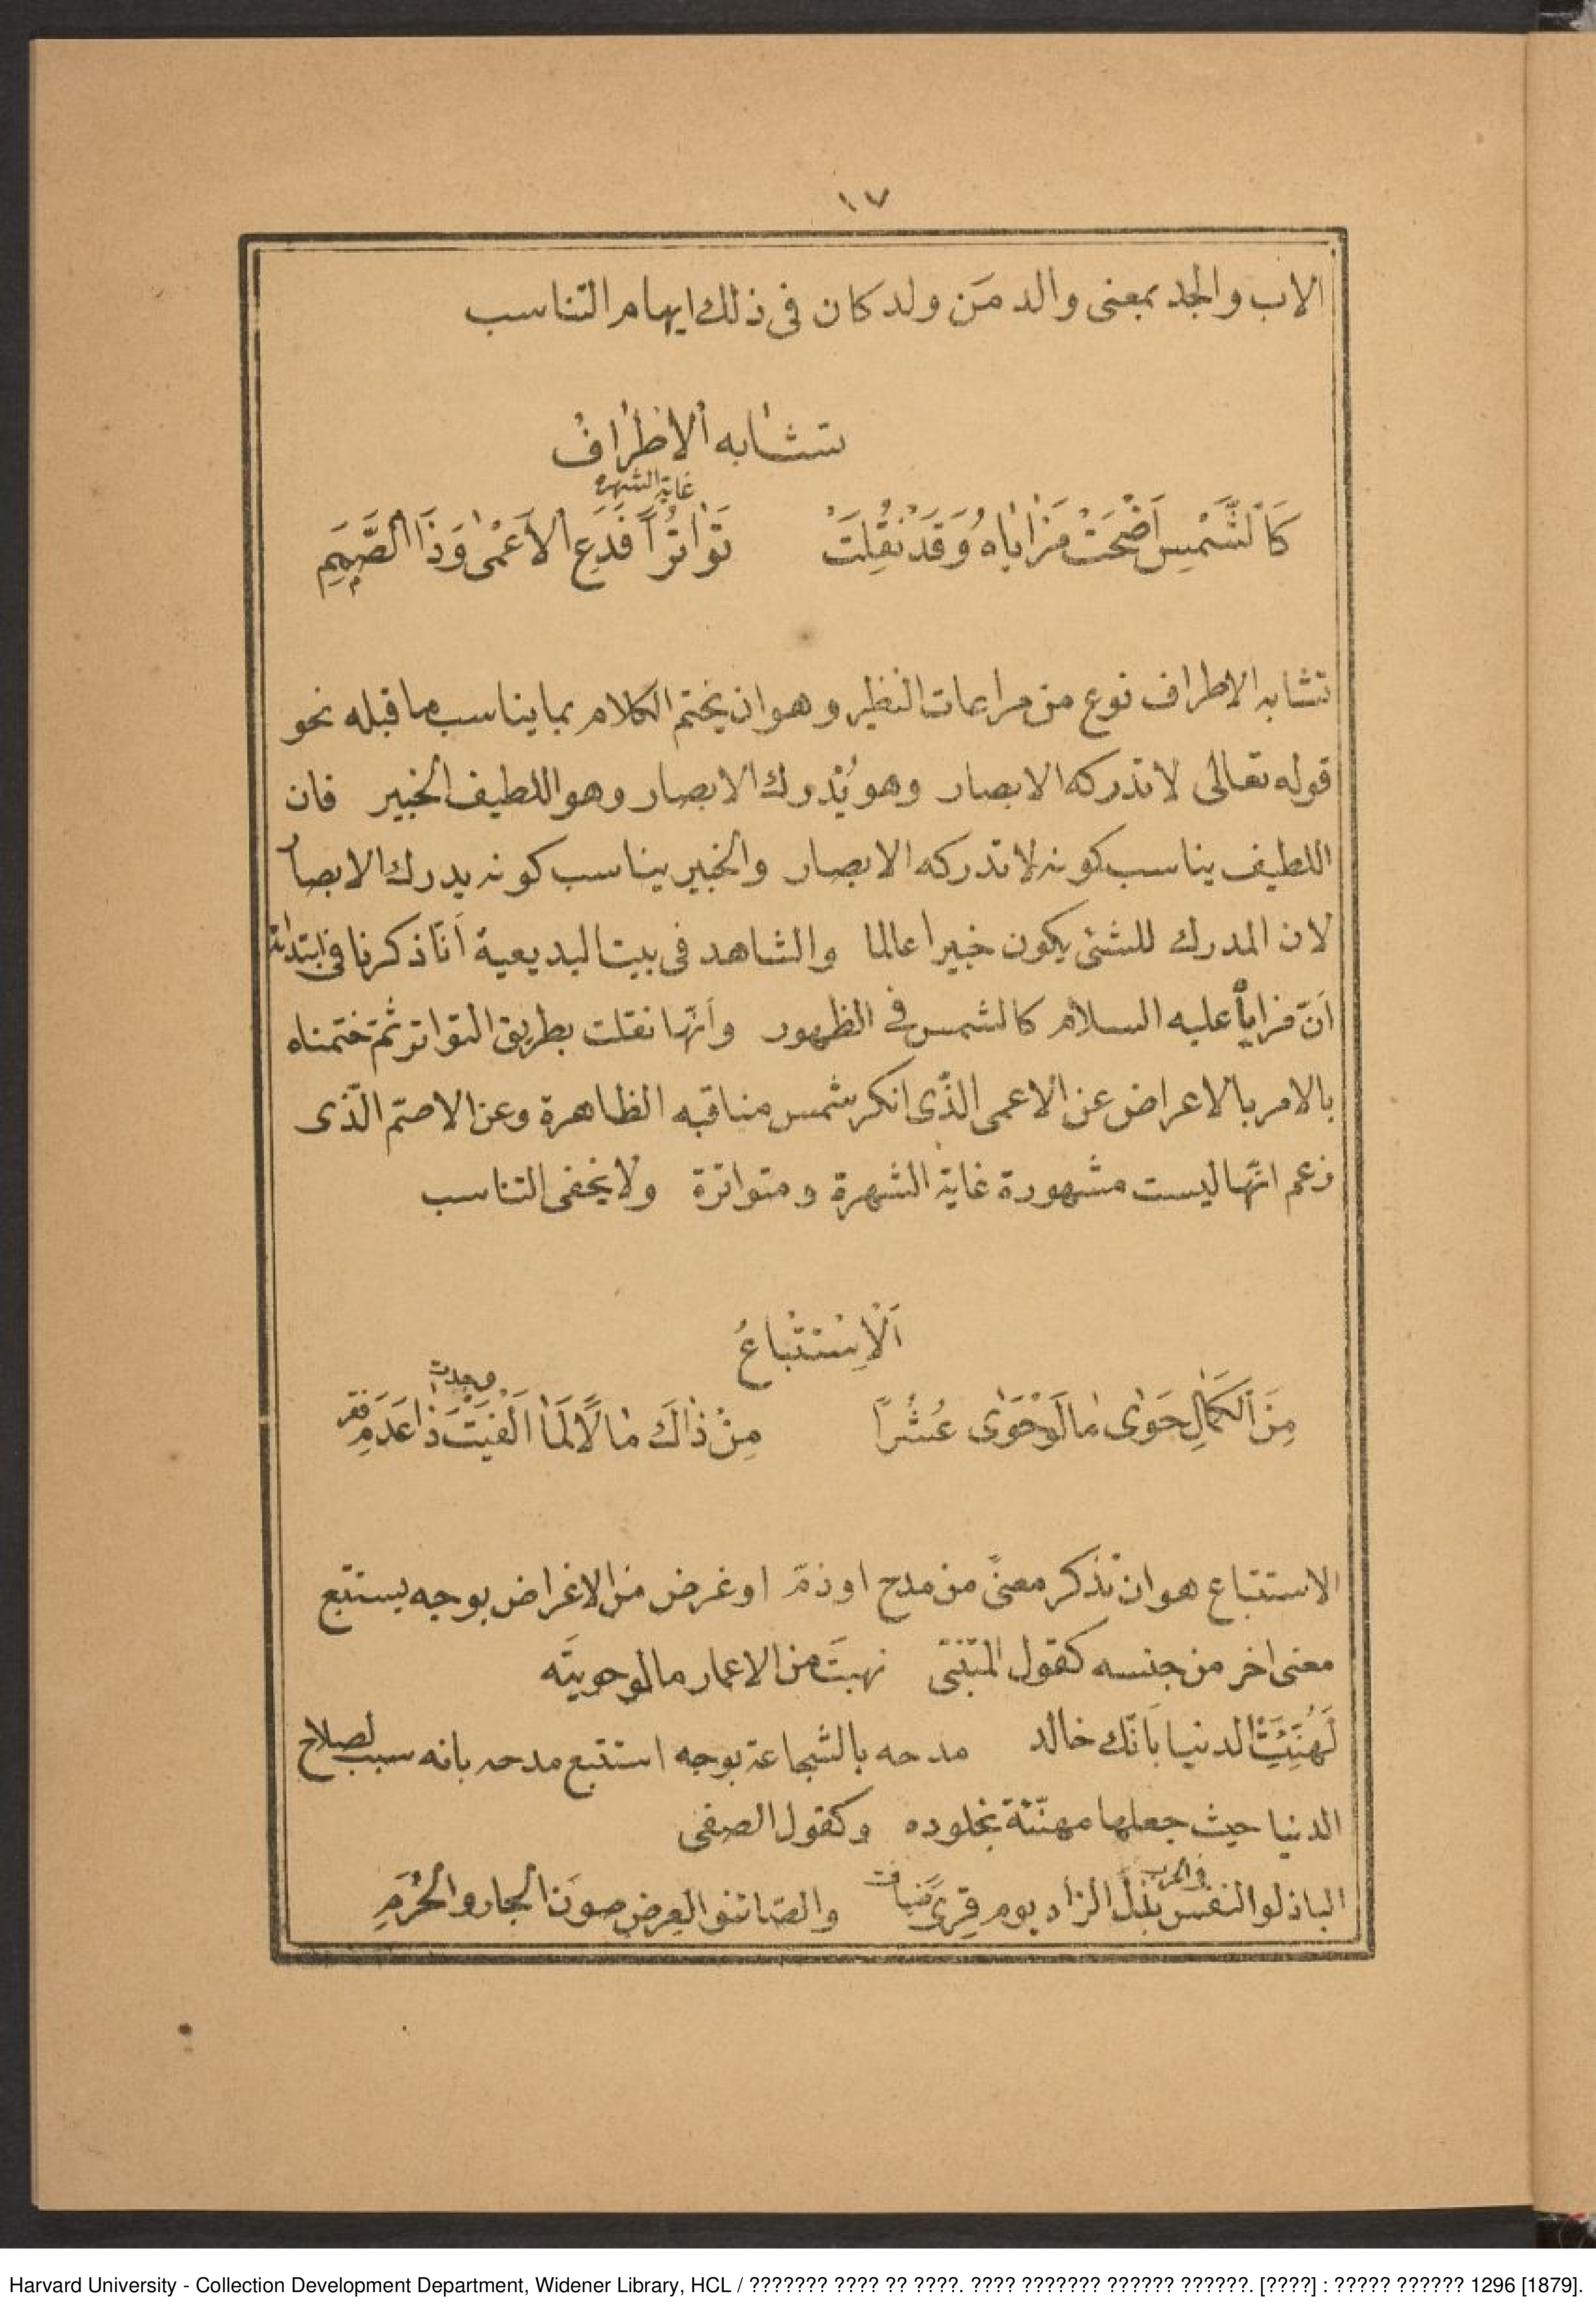 ١٧
الاب والجد بمعنى والد مَن ولد كان فى ذلك ايهام التناسب
تشابه الاطراف
غاية الشهره
كَالشَّمْسِ اَضْحَتْ مَزَايَاهُ وَقَدْ نُقِلَتْ تَوَاتُرًا فَدَعِ الاَعْمٰى وَذَا الصَّمَمِ
تشابه الاطراف نوع من مراعات النظير وهو ان يختم الكلام بما يناسب ما قبله نحو
قوله تعالى لا تدركه الابصار وهو يُدرك الابصار وهو اللطيف الخبير فان
اللطيف يناسب كونه لا تدركه الابصار والخبير يناسب كونه يدرك الابصار
لان المدرك للشئ يكون خبيرا عالما والشاهد فى بيت البديعية اَنّا ذكرنا فى ابتدائه
اَنّ مزاياه عليه السلام كالشمس فى الظهور واَنّها نقلت بطريق التواتر ثمّ ختمناه
بالامر بالاعراض عن الاعمى الّذى انكر شمس مناقبه الظاهرة وعن الاصمّ الّذى
زعم انّها ليست مشهورة غاية الشهرة ومتواترة ولا يخفى التناسب
اَلْاِسْتِتْبَاعُ
وجدت
مِنَ الكَمَالِ حَوٰى مَا لَوْ حَوٰى عُشُرًا مِنْ ذَاكَ مَالًا لَمَا اَلْفَيْتَ ذَا عَدَمِ فقر
الاستتباع هو ان تذكر معنىً من مدح او ذمّ او غرض من الاغراض بوجه يستتبع
معنى اخر من جنسه كقول المتنبّى نهبتَ من الاعمار ما لو حويتَه
لَهُنِّئَتْ الدنيا بَانّك خالد مدحه بالشجاعة بوجه استتبع مدحه بانه سبب لصلاح
الدنيا حيث جعلها مهنّئة بخلوده وكقول الصفى
فى الحرب ضيافت
الباذلو النفس بذلَ الزاد يوم قِرىً والصّائنو العِرض صونَ الجار والحُرَمِ
Harvard University - Collection Development Department, Widener Library, HCL / ??????? ???? ?? ????. ???? ??????? ?????? ??????. [????] : ????? ?????? 1296 [1879].